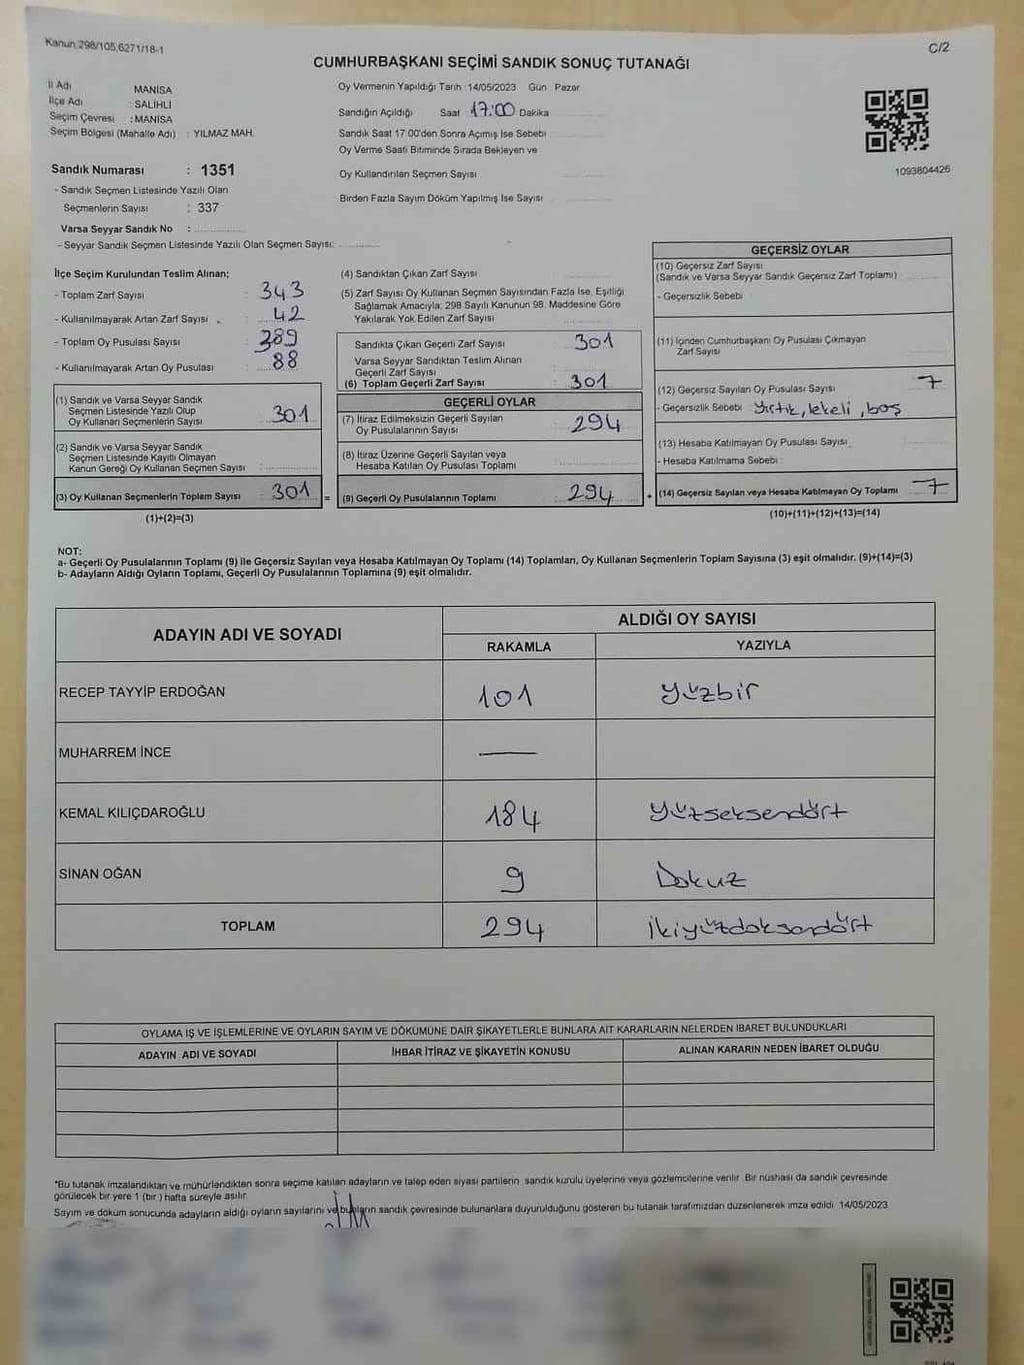 Kanun 298/105,6271/18-1
C/2
CUMHURBAŞKANI SEÇİMİ SANDIK SONUÇ TUTANAĞI
İl Adı MANİSA
İlçe Adı : SALİHLİ
Seçim Çevresi : MANİSA
Seçim Bölgesi (Mahalle Adı) : YILMAZ MAH.
Sandık Numarası : 1351
- Sandık Seçmen Listesinde Yazılı Olan
Seçmenlerin Sayısı : 337
Varsa Seyyar Sandık No :
- Seyyar Sandık Seçmen Listesinde Yazılı Olan Seçmen Sayısı:
Oy Vermenin Yapıldığı Tarih : 14/05/2023 Gün : Pazar
Sandığın Açıldığı Saat 17:00 Dakika
Sandık Saat 17:00'den Sonra Açımış İse Sebebi
Oy Verme Saati Bitiminde Sırada Bekleyen ve
Oy Kullandırılan Seçmen Sayısı
Birden Fazla Sayım Döküm Yapılmış İse Sayısı
1093804426
İlçe Seçim Kurulundan Teslim Alınan;
- Toplam Zarf Sayısı : 343
- Kullanılmayarak Artan Zarf Sayısı : 42
- Toplam Oy Pusulası Sayısı : 389
- Kullanılmayarak Artan Oy Pusulası : 88
(1) Sandık ve Varsa Seyyar Sandık
Seçmen Listesinde Yazılı Olup
Oy Kullanan Seçmenlerin Sayısı : 301
(2) Sandık ve Varsa Seyyar Sandık
Seçmen Listesinde Kayıtlı Olmayan
Kanun Gereği Oy Kullanan Seçmen Sayısı
(3) Oy Kullanan Seçmenlerin Toplam Sayısı : 301 =
(1)+(2)=(3)
(4) Sandıktan Çıkan Zarf Sayısı
(5) Zarf Sayısı Oy Kullanan Seçmen Sayısından Fazla İse, Eşitliği
Sağlamak Amacıyla; 298 Sayılı Kanunun 98. Maddesine Göre
Yakılarak Yok Edilen Zarf Sayısı
Sandıkta Çıkan Geçerli Zarf Sayısı : 301
Varsa Seyyar Sandıktan Teslim Alınan
Geçerli Zarf Sayısı
(6) Toplam Geçerli Zarf Sayısı : 301
GEÇERLİ OYLAR
(7) İtiraz Edilmeksizin Geçerli Sayılan
Oy Pusulalarının Sayısı : 294
(8) İtiraz Üzerine Geçerli Sayılan veya
Hesaba Katılan Oy Pusulası Toplamı
(9) Geçerli Oy Pusulalarının Toplamı : 294 +
GEÇERSİZ OYLAR
(10) Geçersiz Zarf Sayısı
(Sandık ve Varsa Seyyar Sandık Geçersiz Zarf Toplamı)
- Geçersizlik Sebebi
(11) İçinden Cumhurbaşkanı Oy Pusulası Çıkmayan
Zarf Sayısı
(12) Geçersiz Sayılan Oy Pusulası Sayısı 7
- Geçersizlik Sebebi : Yırtık, lekeli, boş
(13) Hesaba Katılmayan Oy Pusulası Sayısı
- Hesaba Katılmama Sebebi :
(14) Geçersiz Sayılan veya Hesaba Katılmayan Oy Toplamı 7
(10)+(11)+(12)+(13)=(14)
NOT:
a- Geçerli Oy Pusulalarının Toplamı (9) ile Geçersiz Sayılan veya Hesaba Katılmayan Oy Toplamı (14) Toplamları, Oy Kullanan Seçmenlerin Toplam Sayısına (3) eşit olmalıdır. (9)+(14)=(3)
b- Adayların Aldığı Oyların Toplamı, Geçerli Oy Pusulalarının Toplamına (9) eşit olmalıdır.
ADAYIN ADI VE SOYADI
ALDIĞI OY SAYISI
RAKAMLA YAZIYLA
RECEP TAYYİP ERDOĞAN 101 Yüzbir
MUHARREM İNCE —
KEMAL KILIÇDAROĞLU 184 Yüzseksendört
SİNAN OĞAN 9 Dokuz
TOPLAM 294 İkiyüzdoksandört
OYLAMA İŞ VE İŞLEMLERİNE VE OYLARIN SAYIM VE DÖKÜMÜNE DAİR ŞİKAYETLERLE BUNLARA AİT KARARLARIN NELERDEN İBARET BULUNDUKLARI
ADAYIN ADI VE SOYADI İHBAR İTİRAZ VE ŞİKAYETİN KONUSU ALINAN KARARIN NEDEN İBARET OLDUĞU
*Bu tutanak imzalandıktan ve mühürlendikten sonra seçime katılan adayların ve talep eden siyasi partilerin sandık kurulu üyelerine veya gözlemcilerine verilir. Bir nüshası da sandık çevresinde
görülecek bir yere 1 (bir ) hafta süreyle asılır.
Sayım ve döküm sonucunda adayların aldığı oyların sayılarını ve bunların sandık çevresinde bulunanlara duyurulduğunu gösteren bu tutanak tarafımızdan düzenlenerek imza edildi. 14/05/2023